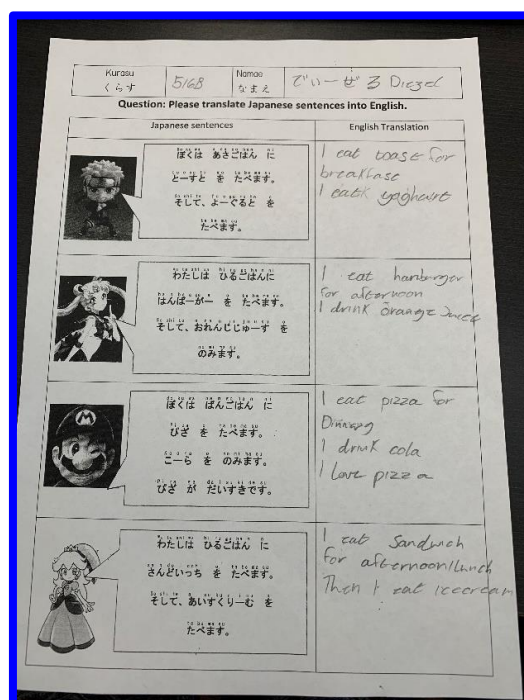 Kurasu
くらす
5/6B
Namae
なまえ
でぃーぜる Diezel
Question: Please translate Japanese sentences into English.
Japanese sentences
English Translation
ぼくは あさごはん に
とーすと を たべます。
そして、よーぐると を
たべます。
I eat toast for
breakfast
I eat yoghurt
わたしは ひるごはんに
はんばーがー を たべます。
そして、おれんじじゅーす を
のみます。
I eat hamburger
for afternoon
I drink orange Juice
ぼくは ばんごはん に
ぴざ を たべます。
こーら を のみます。
ぴざ が だいすきです。
I eat pizza for
I drink cola
I love pizza
わたしは ひるごはん に
さんどいっち を たべます。
そして、あいすくりーむ を
たべます。
I eat Sandwich
for afternoon/lunch
Then I eat icecream
M